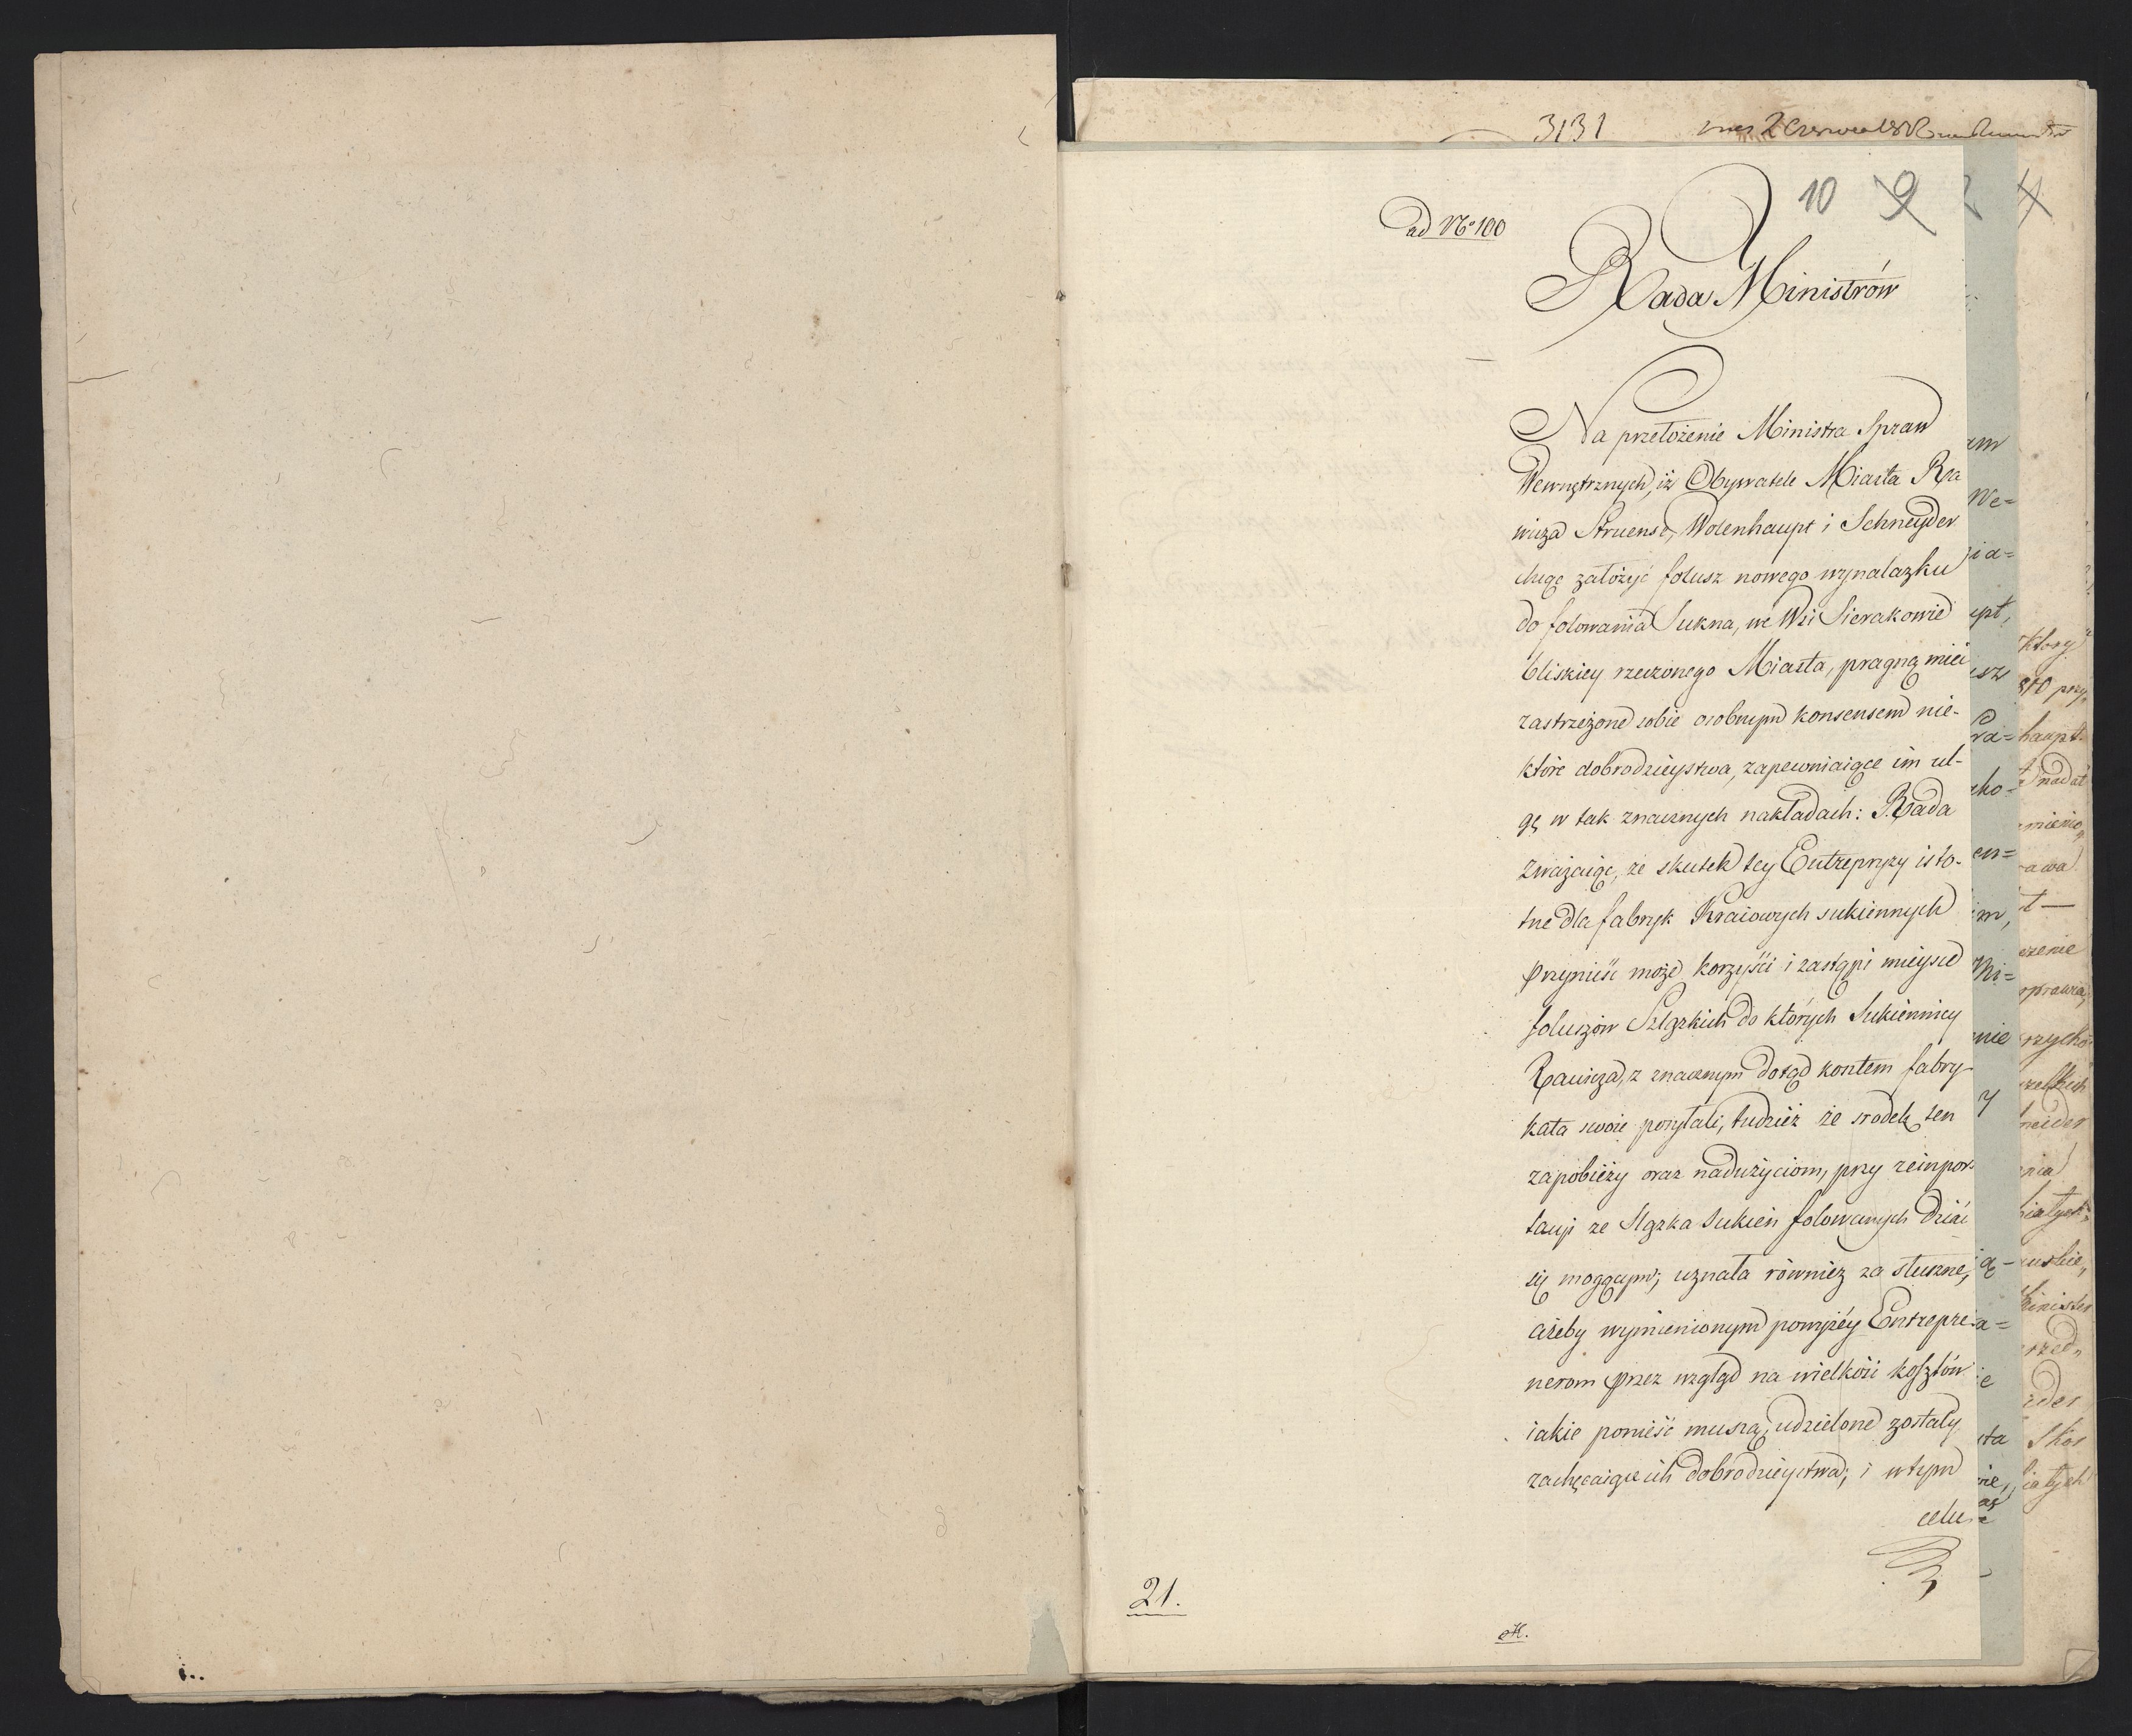 3131
10 9
ad No 100
Rada Ministrów
Na przełożenie Ministra Spraw
Wewnętrznych, iż Obywatele Miasta Ra
wicza Struense, Wolenhaupt i Schneyder
chcąc założyć folusz nowego wynalazku
do folowania Sukna, we Wsi Sierakowie
bliskiey rzeczonego Miasta, pragną mieć
zastrzeżone sobie osobnym konsensem nie-
które dobrodzieystwa, zapewniaiące im ul-
gę w tak znacznych nakładach: Rada
zważaiąc, że skutek tey Entrepryzy isto-
tne dla fabryk Kraiowych sukiennych
przynieść może korzyści i zastąpi mieysce
foluszów Szląskich do których Sukiennicy
Rawicza, z znacznym dotąd kosztem fabry-
kata swoie posyłali, tudzież że srodek ten
zapobieży oraz nadużyciom, przy reimpor-
tacyi ze Sląska Sukien folowanych dziać
się mogącym; uznała również za słuszne,
ażeby wymienionym powyżéy Entrepre-
nerom przez wzgląd na wielkość kosztów
iakie ponieść muszą, udzielone zostały
zachęcaiące ich dobrodzieystwa; i w tym
celu
21.